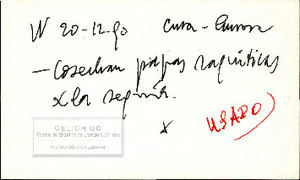 W 20-12-90 Cura-
— Cosechan papas raquíticas
x la sequía.
x USADO
CELICH UC
Centro de Estudios de Literatura Chilena